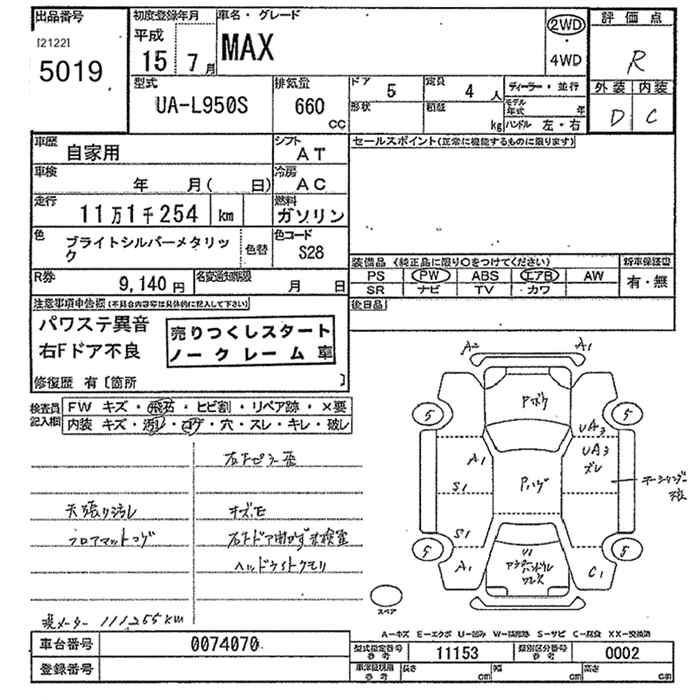 出品番号
[21221
5019
初度登録年月
平成
15 7月
車名・グレード
MAX
2WD
・
4WD
評価点
R
外装 内装
D C
型式
UA-L950S
排気量
660
CC
ドア
5
定員
4 人
形状
積載
kg
ディーラー・並行
モデル年式 年
ハンドル 左・右
車歴
自家用
シフト
AT
車検
年 月( 日)
冷房
AC
走行
11万1千254 km
燃料
ガソリン
色
ブライトシルバーメタリック
色替
色コード
S28
R券
9,140円
名変通知期限
月 日
セールスポイント(正常に機能するものに限ります)
装備品 (純正品に限り○をつけてください)
新車保証書
PS PW ABS エアB AW
SR ナビ TV カワ
有・無
後日品
注意事項申告欄(不具合内容は具体的に記入して下さい)
パワステ異音
右Fドア不良
売りつくしスタート
ノークレーム車
修復歴 有 [箇所 ]
検査員
記入欄
FW キズ・飛石・ヒビ割・リペア跡・×要
内装 キズ・汚レ・コゲ・穴・スレ・キレ・破レ
天張り汚レ
キズモ
フロアマットコゲ
右Fドア開かず未検査
ヘッドライトクモリ
現メーター 111255km
A2
A1
5
5
5
5
Pハゲ
A1
S1
S1
A1
UA3
UA3
ズレ
C1
U1
スペア
A―キズ E―エクボ U―凹み W―補修跡 S―サビ C―腐食 XX―交換済
車台番号
0074070
型式指定番号
参考
11153
類別区分番号
参考
0002
登録番号
車検証現用
参考
長さ cm
幅 cm
高さ cm